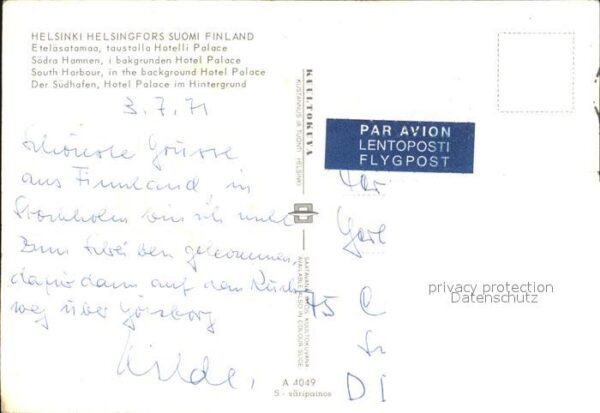 HELSINKI HELSINGFORS SUOMI FINLAND
Eteläsatamaa, taustalla Hotelli Palace
Södra Hamnen, i bakgrunden Hotel Palace
South Harbour, in the background Hotel Palace
Der Südhafen, Hotel Palace im Hintergrund
3.7.71
Schönste Grüsse
aus Finnland, in
Stockholm bin ich nicht
zum Schreiben gekommen,
dafür dann auf dem
weg über Göteborg
KUULTOKUVA
KUSTANNUS JA TUONTI HELSINKI
PAR AVION
LENTOPOSTI
FLYGPOST
75 C
D I
SAATAVANA MYÖS KUULTOKUVANA
AVAILABLE ALSO IN COLOUR SLIDE
A 4049
S - väripainos
privacy protection
Datenschutz